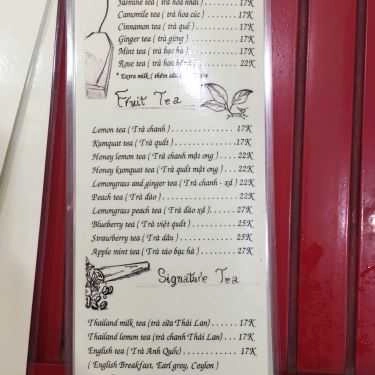 Jasmine tea ( trà hoa nhài ) . . . . . . . . . 17K
Camomile tea ( trà hoa cúc ) . . . . . . . . 17K
Cinnamon tea ( trà quế ) . . . . . . . . . . 17K
Ginger tea ( trà gừng ) . . . . . . . . . . . 17K
Mint tea ( trà bạc hà ) . . . . . . . . . . . 17K
Rose tea ( trà hoa hồng ) . . . . . . . . . 22K
* Extra milk ( thêm sữa
Fruit Tea
Lemon tea ( Trà chanh ) . . . . . . . . . . . . . 17K
Kumquat tea ( Trà quất ) . . . . . . . . . . . . 17K
Honey lemon tea ( Trà chanh mật ong ) . . . . 22K
Honey kumquat tea ( Trà quất mật ong ) . . . 22K
Lemongrass and ginger tea ( Trà chanh - xả ) 22K
Peach tea ( Trà đào) . . . . . . . . . . . . . . . 22K
Lemongrass peach tea ( Trà đào xả ). . . . . . 27K
Blueberry tea ( Trà việt quất) . . . . . . . . . 25K
Strawberry tea ( Trà dâu) . . . . . . . . . . . . 25K
Apple mint tea ( Trà táo bạc hà) . . . . . . . . 27K
Signature Tea
Thailand milk tea (trà sữa Thái Lan). . . . . . 17K
Thailand lemon tea (trà chanh Thái Lan) . . . 17K
English tea ( Trà Anh Quốc) . . . . . . . . . . 17K
( English Breakfast, Earl grey, Ceylon )